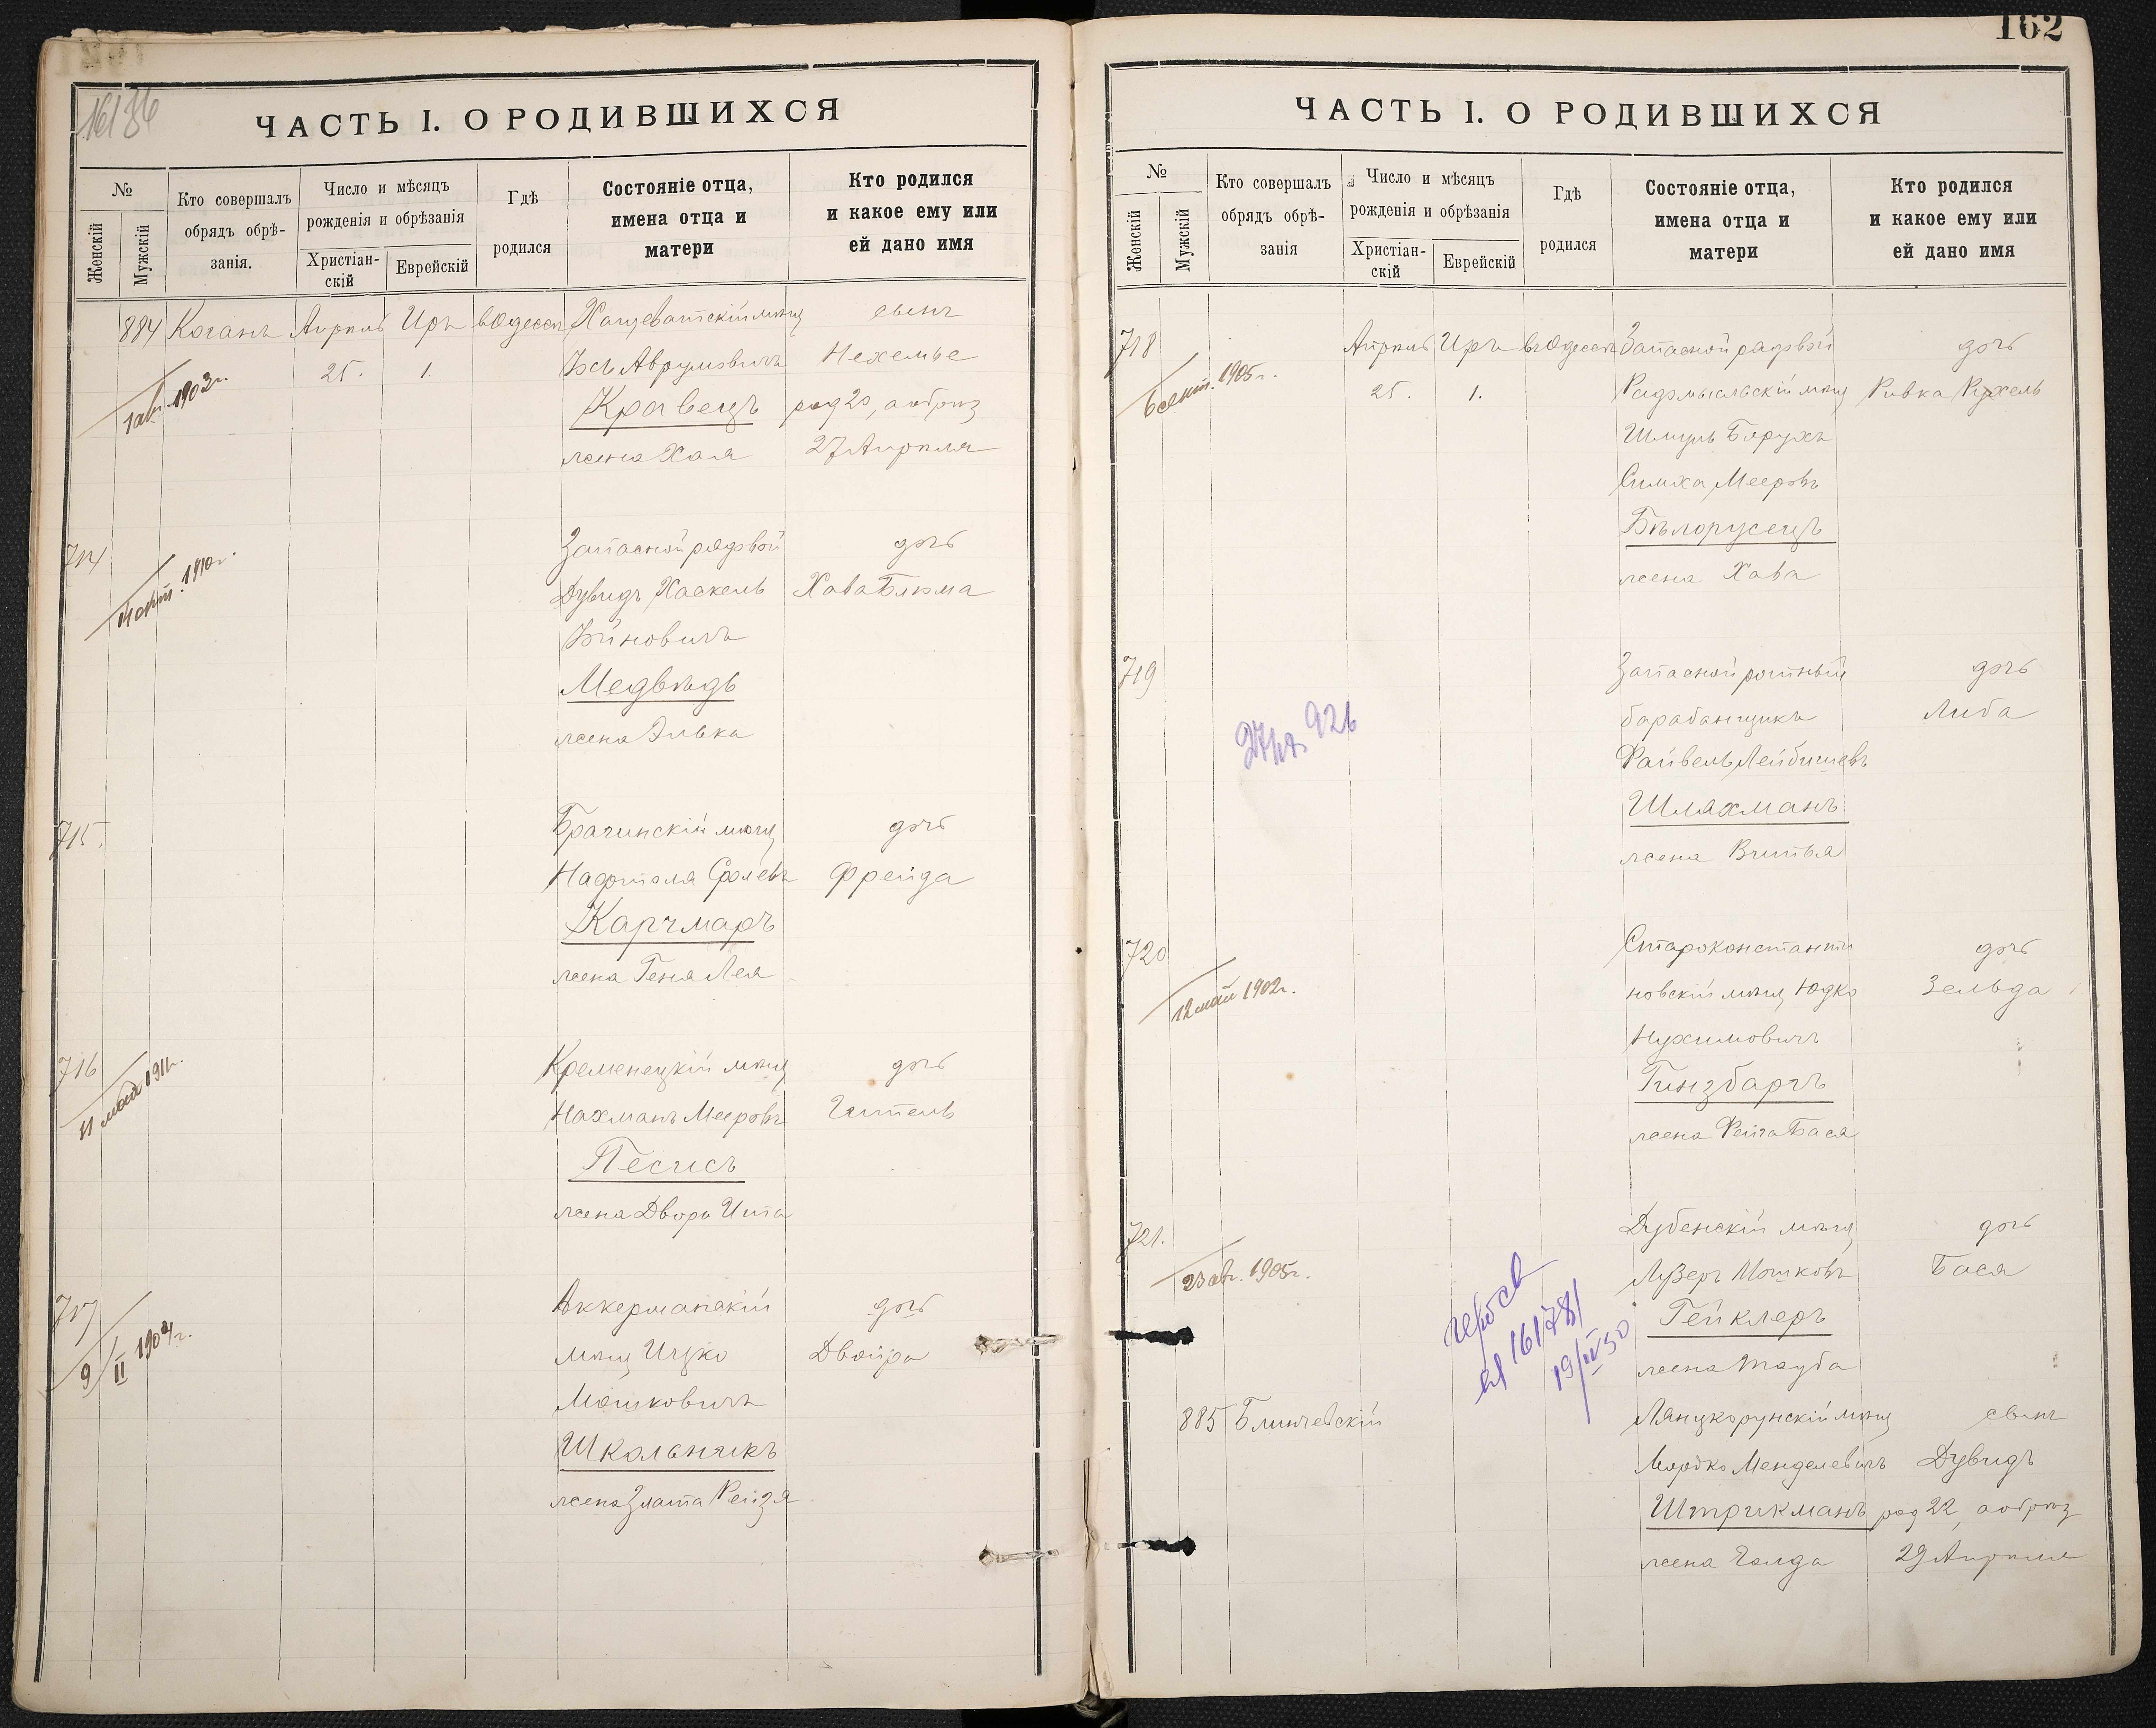 16186
ЧАСТЬ I. О РОДИВШИХСЯ
№
Женскій
Мужскій
Кто совершалъ
обрядъ обрѣ-
занія.
Число и мѣсяцъ
рожденія и обрѣзанія
Христіан-
скій
Еврейскій
Гдѣ
родился
Состояніе отца,
имена отца и
матери
Кто родился
и какое ему или
ей дано имя
884 Коганъ Апрель Иръ въ Одессѣ Хащеватскій мѣщ сынъ
25. 1. Іось Аврумовичъ Нехемье
1 авг. 1903 г.
Кравецъ род 20, а обрѣз
жена Хая 27 Апреля
714 Запасной рядовой дочь
1910 г.
Дувидъ Хаскель Хава Блюма
Медвѣдь
жена Элька
715. мѣщ дочь
Нафтоля Сролевъ Фрейда
Карчмаръ
жена Геня Лея
716 Кременецкій мѣщ дочь
11 май 1911 г.
Нахманъ Мееровъ Гитель
Песисъ
жена Двора Ита
717 Аккерманскій дочь
9/II 1904 г.
мѣщ Ицко Двойра
Мошковичъ
Школьникъ
жена Злата Рейзя
162
ЧАСТЬ I. О РОДИВШИХСЯ
№
Женскій
Мужскій
Кто совершалъ
обрядъ обрѣ-
занія
Число и мѣсяцъ
рожденія и обрѣзанія
Христіан-
скій
Еврейскій
Гдѣ
родился
Состояніе отца,
имена отца и
матери
Кто родился
и какое ему или
ей дано имя
718 Апрель Иръ въ Одессѣ Запасной рядовой дочь
6 сент. 1905 г.
25. 1. Радомысльскій мѣщ Ривка Рухель
Шмуль Борухъ
Симха Мееровъ
Бѣлорусецъ
жена Хава
719 Запасной ротный дочь
барабанщикъ Либа
926
Файвель Лейбишевъ
Шляхманъ
жена
720 Староконстанти дочь
новскій мѣщ Юдко Зельда
12 май 1902 г.
Нухимовичъ
Гинзбаргъ
жена Фейга Бася
721. Дубенскій мѣщ дочь
23 авг. 1905 г.
Лузеръ Мошковъ Бася
Гейклеръ
161781
19/IV 30
жена Тауба
885 Блинчевскій Ланцкорунскій мѣщ сынъ
Мордко Менделевичъ Дувидъ
Штрикманъ род 22, а обрѣз
жена Голда 29 Апреля